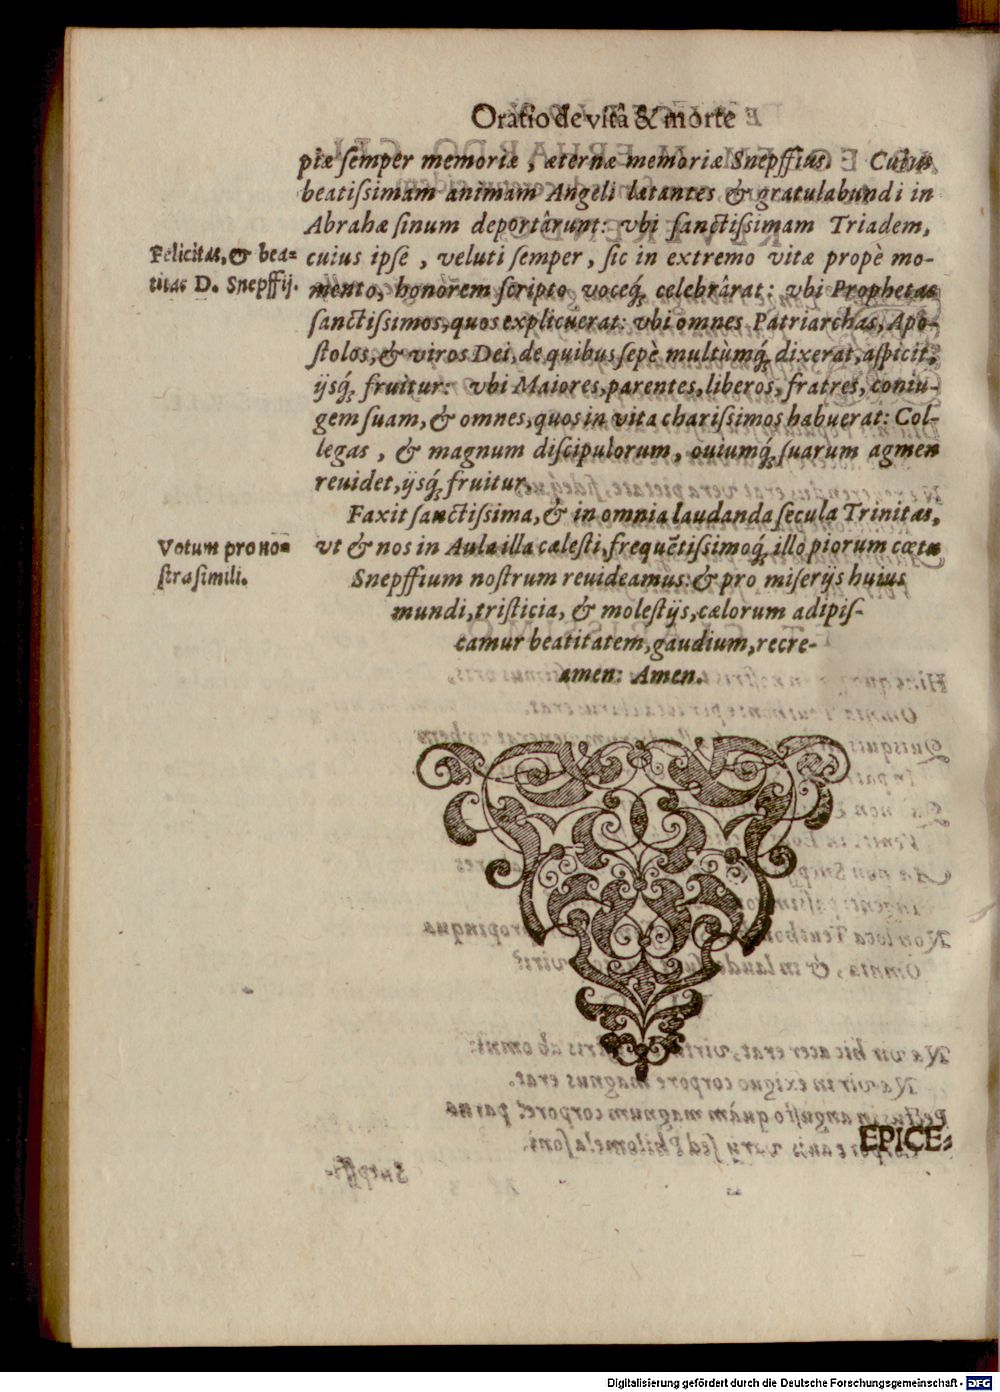 Oratio de vitâ & morte
piæ semper memoriæ, æternæ memoriæ Snepffius. Cuius
beatissimam animam Angeli lætantes & gratulabundi in
Abrahæ sinum deportârunt: vbi sanctissimam Triadem,
Felicitas, & bea=
titas D. Snepffij.
cuius ipse, veluti semper, sic in extremo vitæ propè mo-
mento, honorem scripto voceq́; celebrârat: vbi Prophetas
sanctissimos, quos explicuerat: vbi omnes Patriarchas, Apo-
stolos, & viros Dei, de quibus sepè multùmq́; dixerat, aspicit,
ijsq́; fruitur: vbi Maiores, parentes, liberos, fratres, coniu-
gem suam, & omnes, quos in vita charissimos habuerat: Col-
legas, & magnum discipulorum, ouiumq́; suarum agmen
reuidet, ijsq́; fruitur.
Faxit sanctissima, & in omnia laudanda secula Trinitas,
Votum pro no=
stra simili.
vt & nos in Aula illa cælesti, frequẽtissimoq́; illo piorum cœtu
Snepffium nostrum reuideamus: & pro miserijs huius
mundi, tristicia, & molestijs, cælorum adipis-
camur beatitatem, gaudium, recre-
amen: Amen.
EPICE=
Digitalisierung gefördert durch die Deutsche Forschungsgemeinschaft - DFG